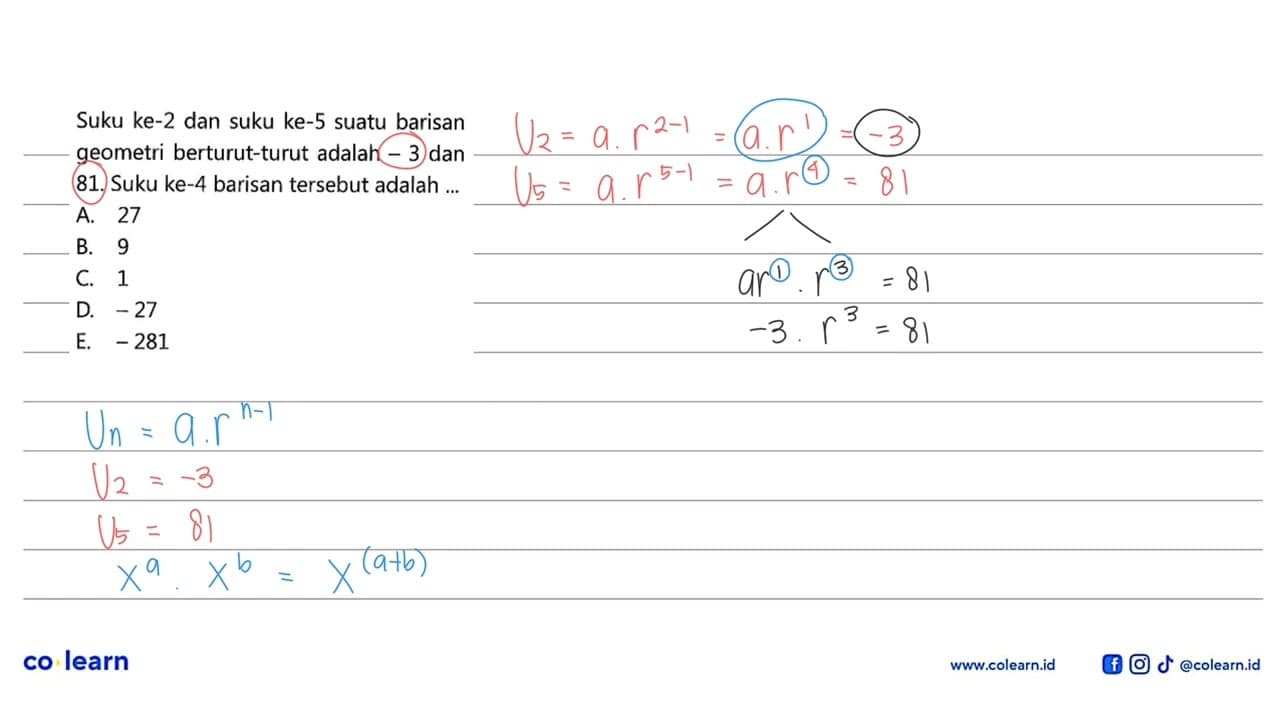 Suku ke-2 dan suku ke-5 suatu barisan
geometri berturut-turut adalah – 3 dan
81. Suku ke-4 barisan tersebut adalah ...
A. 27
B. 9
C. 1
D. – 27
E. – 281
U₂ = a.r²⁻¹ = a.r¹ = -3
U₅ = a.r⁵⁻¹ = a.r⁴ = 81
ar¹ . r³ = 81
-3 . r³ = 81
Uₙ = a.rⁿ⁻¹
U₂ = -3
U₅ = 81
xᵃ . xᵇ = x⁽ᵃ⁺ᵇ⁾
co learn
www.colearn.id
@colearn.id